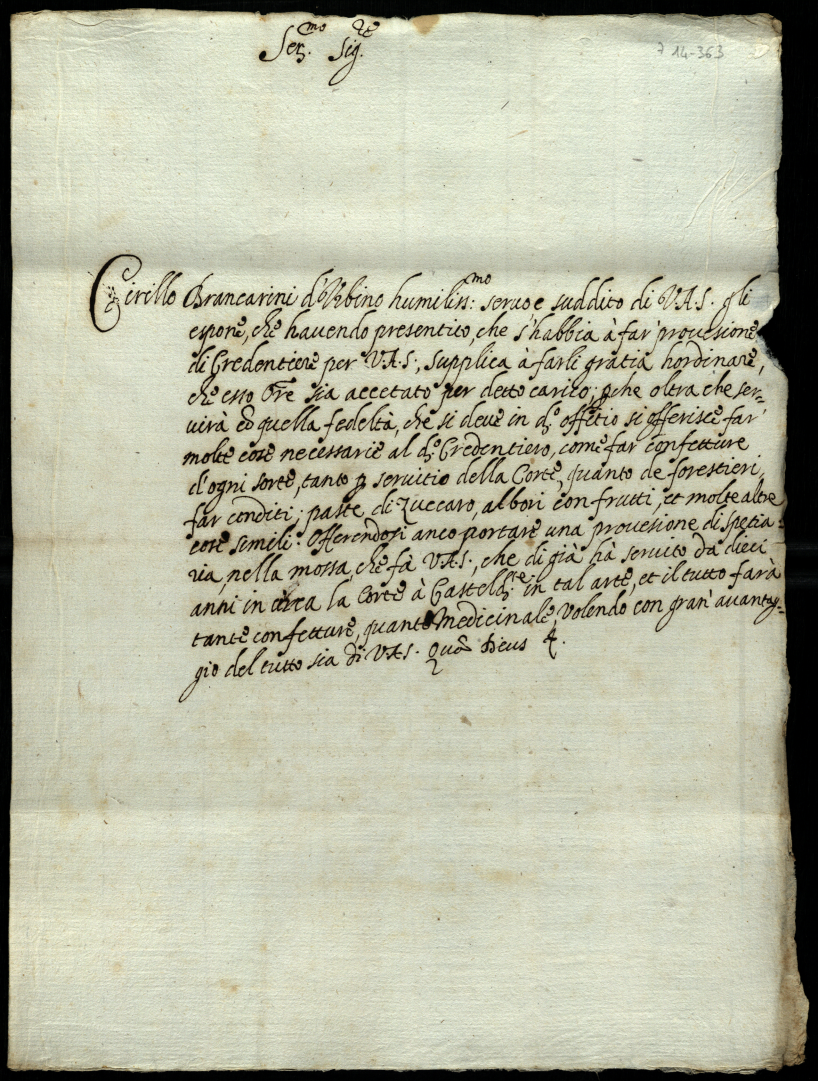 Ser.mo Sig.re
7 14-363
Cirillo Brancarini d'Urbino humiliss:mo servo, e suddito di V.A.S. gli
espone, che havendo presentito, che s'habbia à far provesione
di Credentiere per V.A.S., supplica à farli gratia hordinare,
che esso Ore sia accetato per detto carico; pche oltra che ser=
virà cõ quella fedeltà, che si deve in d.o offitio si offerisce far
molte cose necessarie al d.o Credentiero, come far confetture
d'ogni sorte, tanto p servitio della Corte, quanto de forestieri,
far conditi; paste di Zuccaro, albori con frutti, et molte altre
cose simili: Offerendosi anco portare una provesione di spetia=
ria, nella mossa, che fà V.A.S., che di già hà servito da dieci
anni in circa la Corte à Casteld.te in tal arte, et il tutto farà
tante confetture, quante Medicinale, volendo con gran' avantag=
gio del tutto sia di V.A.S. Quã Deus